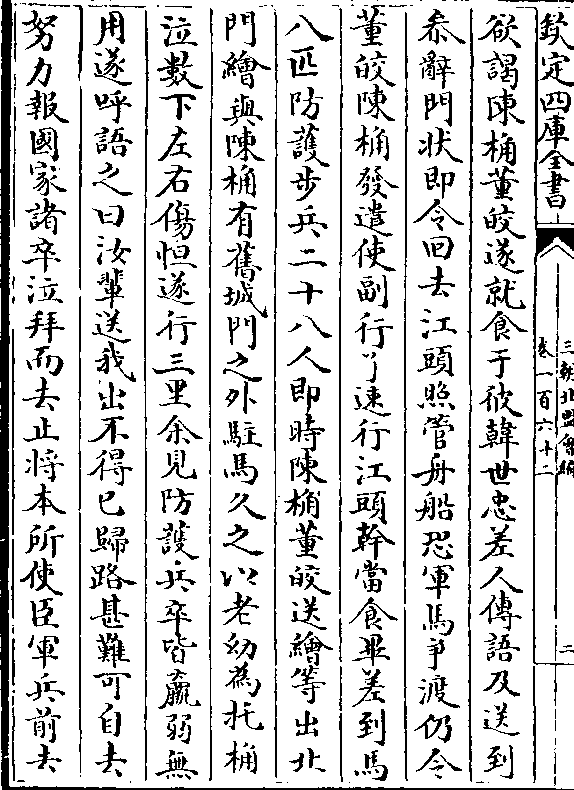 欽定四庫全書
三朝北盟會編
卷一百六十二
二
欲謁陳桷董皎遂就食于彼韓世忠差人傳語及送到
叅辭門狀即令回去江頭照管舟船恐軍馬爭渡仍令
董皎陳桷發遣使副行了速行江頭幹當食畢差到馬
八匹防護步兵二十八人即時陳桷董皎送繪等出北
門繪與陳桷有舊城門之外駐馬久之以老幼為托桷
泣數下左右傷怛遂行三里余見防護兵卒皆羸弱無
用遂呼語之曰汝輩送我出不得已歸路甚難可自去
努力報國家諸卒泣拜而去止將本所使臣軍兵前去